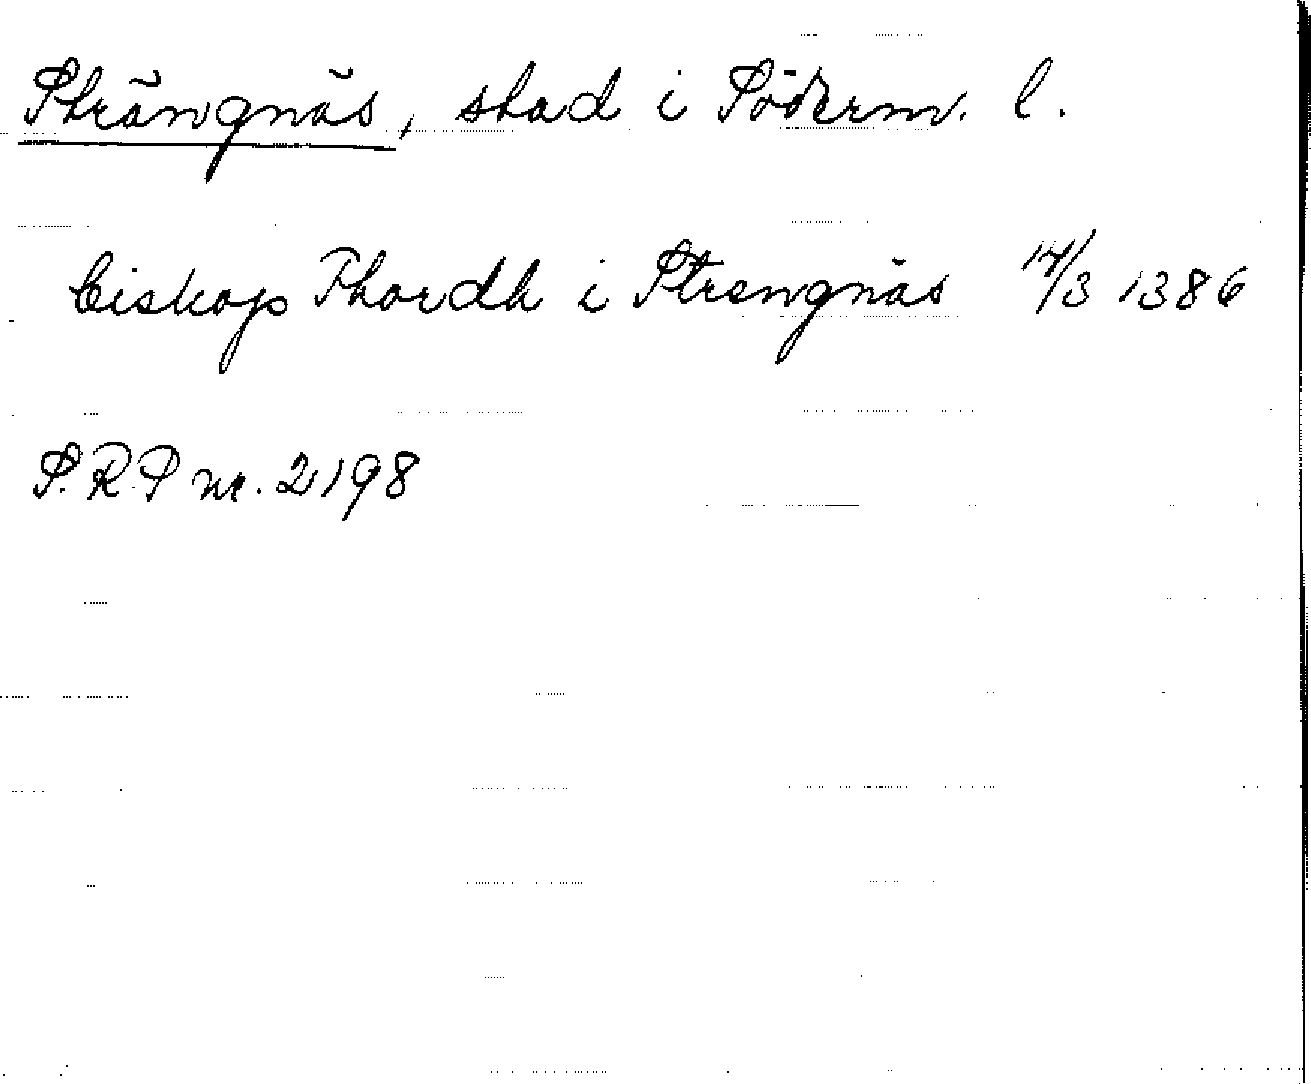 Strängnäs, stad i Söderm. l.
biskop Thordh i Strengnäs 14/3 1386
S.R.P nr. 2198